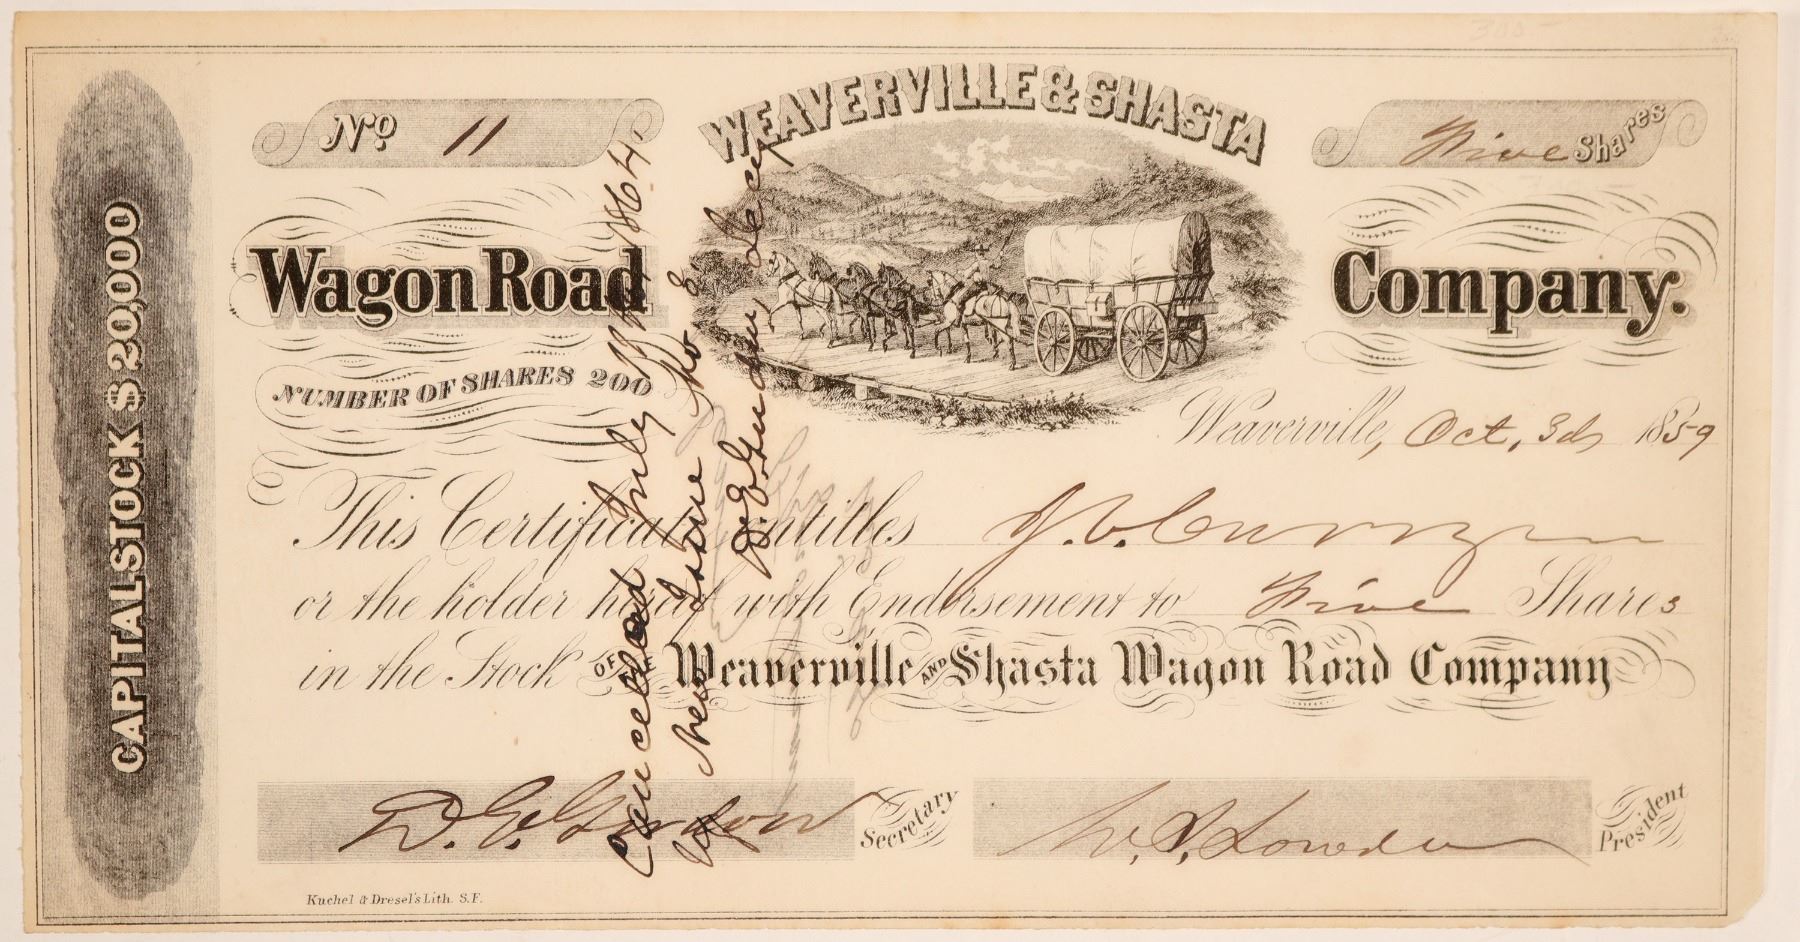 300-
WEAVERVILLE & SHASTA
No 11
Five Shares
Wagon Road Company.
NUMBER OF SHARES 200
CAPITAL STOCK $20,000
Weaverville, Oct, 3d, 1859
This Certificate entitles J. V.
or the holder hereof with Endorsement to Five Shares
in the Stock OF THE Weaverville AND Shasta Wagon Road Company
D. E. Gordon Secretary
W. S. Lowden President
Kuchel & Dresel's Lith. S.F.
Cancelled July 1864,
New Issue No 8,
D. E. Gordon, Secy